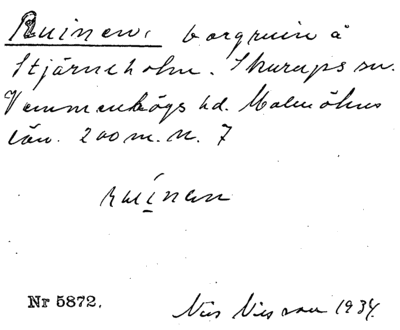 Ruinen, borgruin å
Stjärneholm. Skurups sn.
Vemmenhögs hd. Malmöhus
län. 200 m. n. 7
ruinen
Nr 5872. Nils Nilsson 1934.